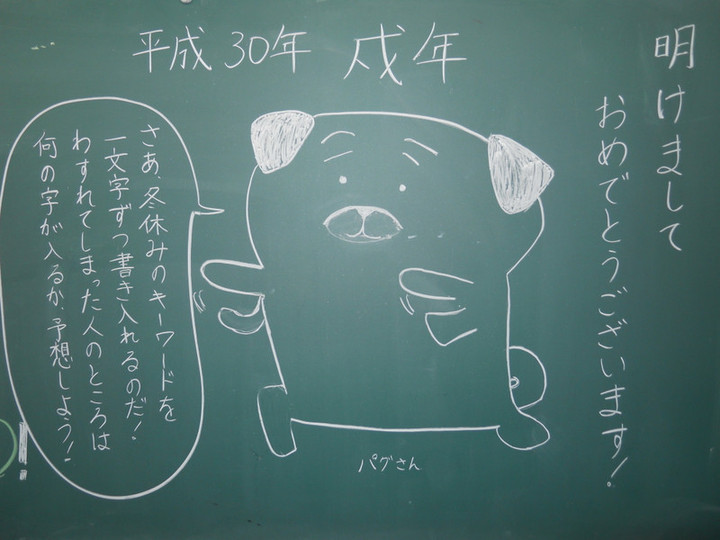 平成30年 戌年
明けまして
おめでとうございます！
さあ、冬休みのキーワードを
一文字ずつ書き入れるのだ！
わすれてしまった人のところは
何の字が入るか、予想しよう！
パグさん